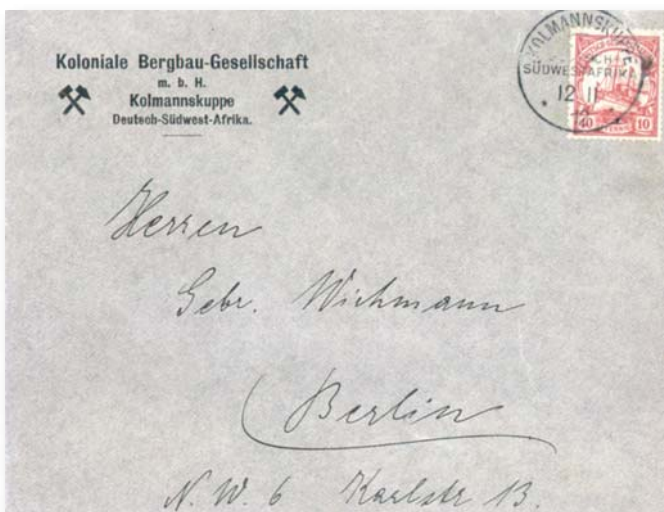 Koloniale Bergbau-Gesellschaft
m. b. H.
Kolmannskuppe
Deutsch-Südwest-Afrika.
KOLMANNSKUPPE
SÜDWESTAFRIKA
12 11
40 10
Herren
Gebr. Wichmann
Berlin
N. W. 6 Karlstr 13.